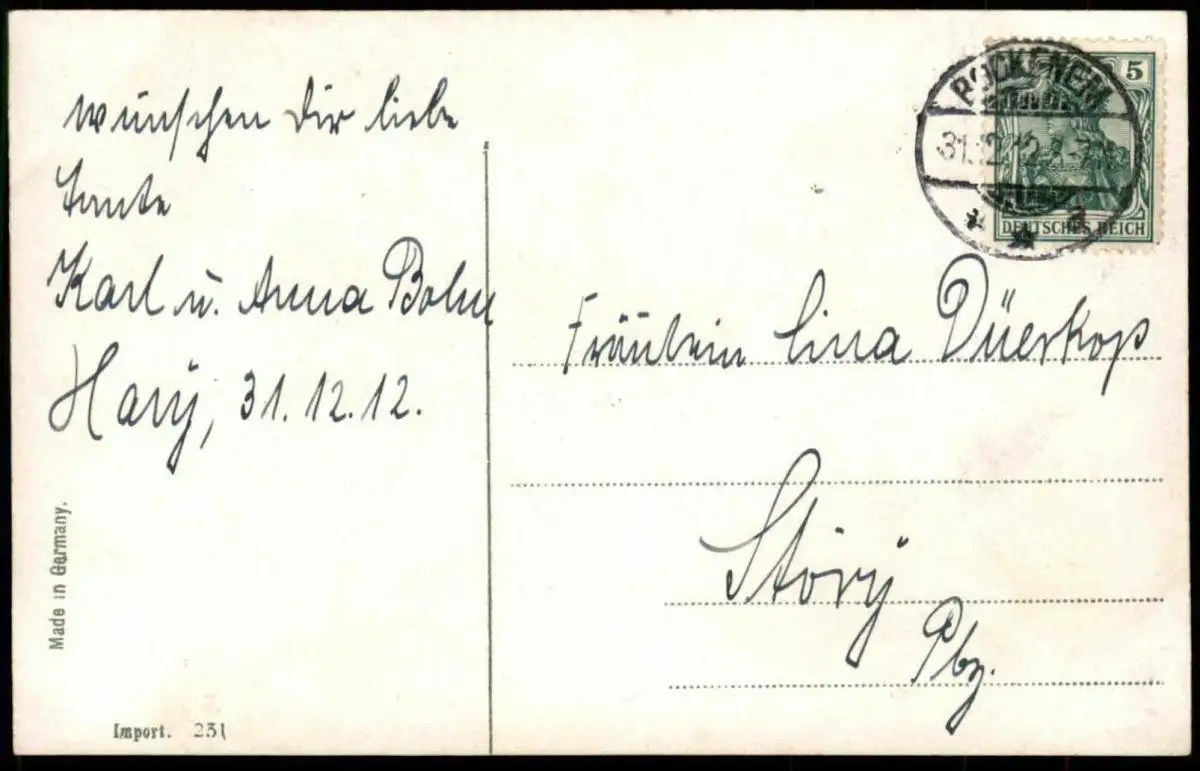 wünschen Dir liebe
Tante
Karl u. Anna Bohn
Hary, 31.12.12.
Made in Germany.
Import. 231
BOCKENEM
31.12.12.
5
DEUTSCHES REICH
Fräulein Lina Düerkop
Störy
Pbz.